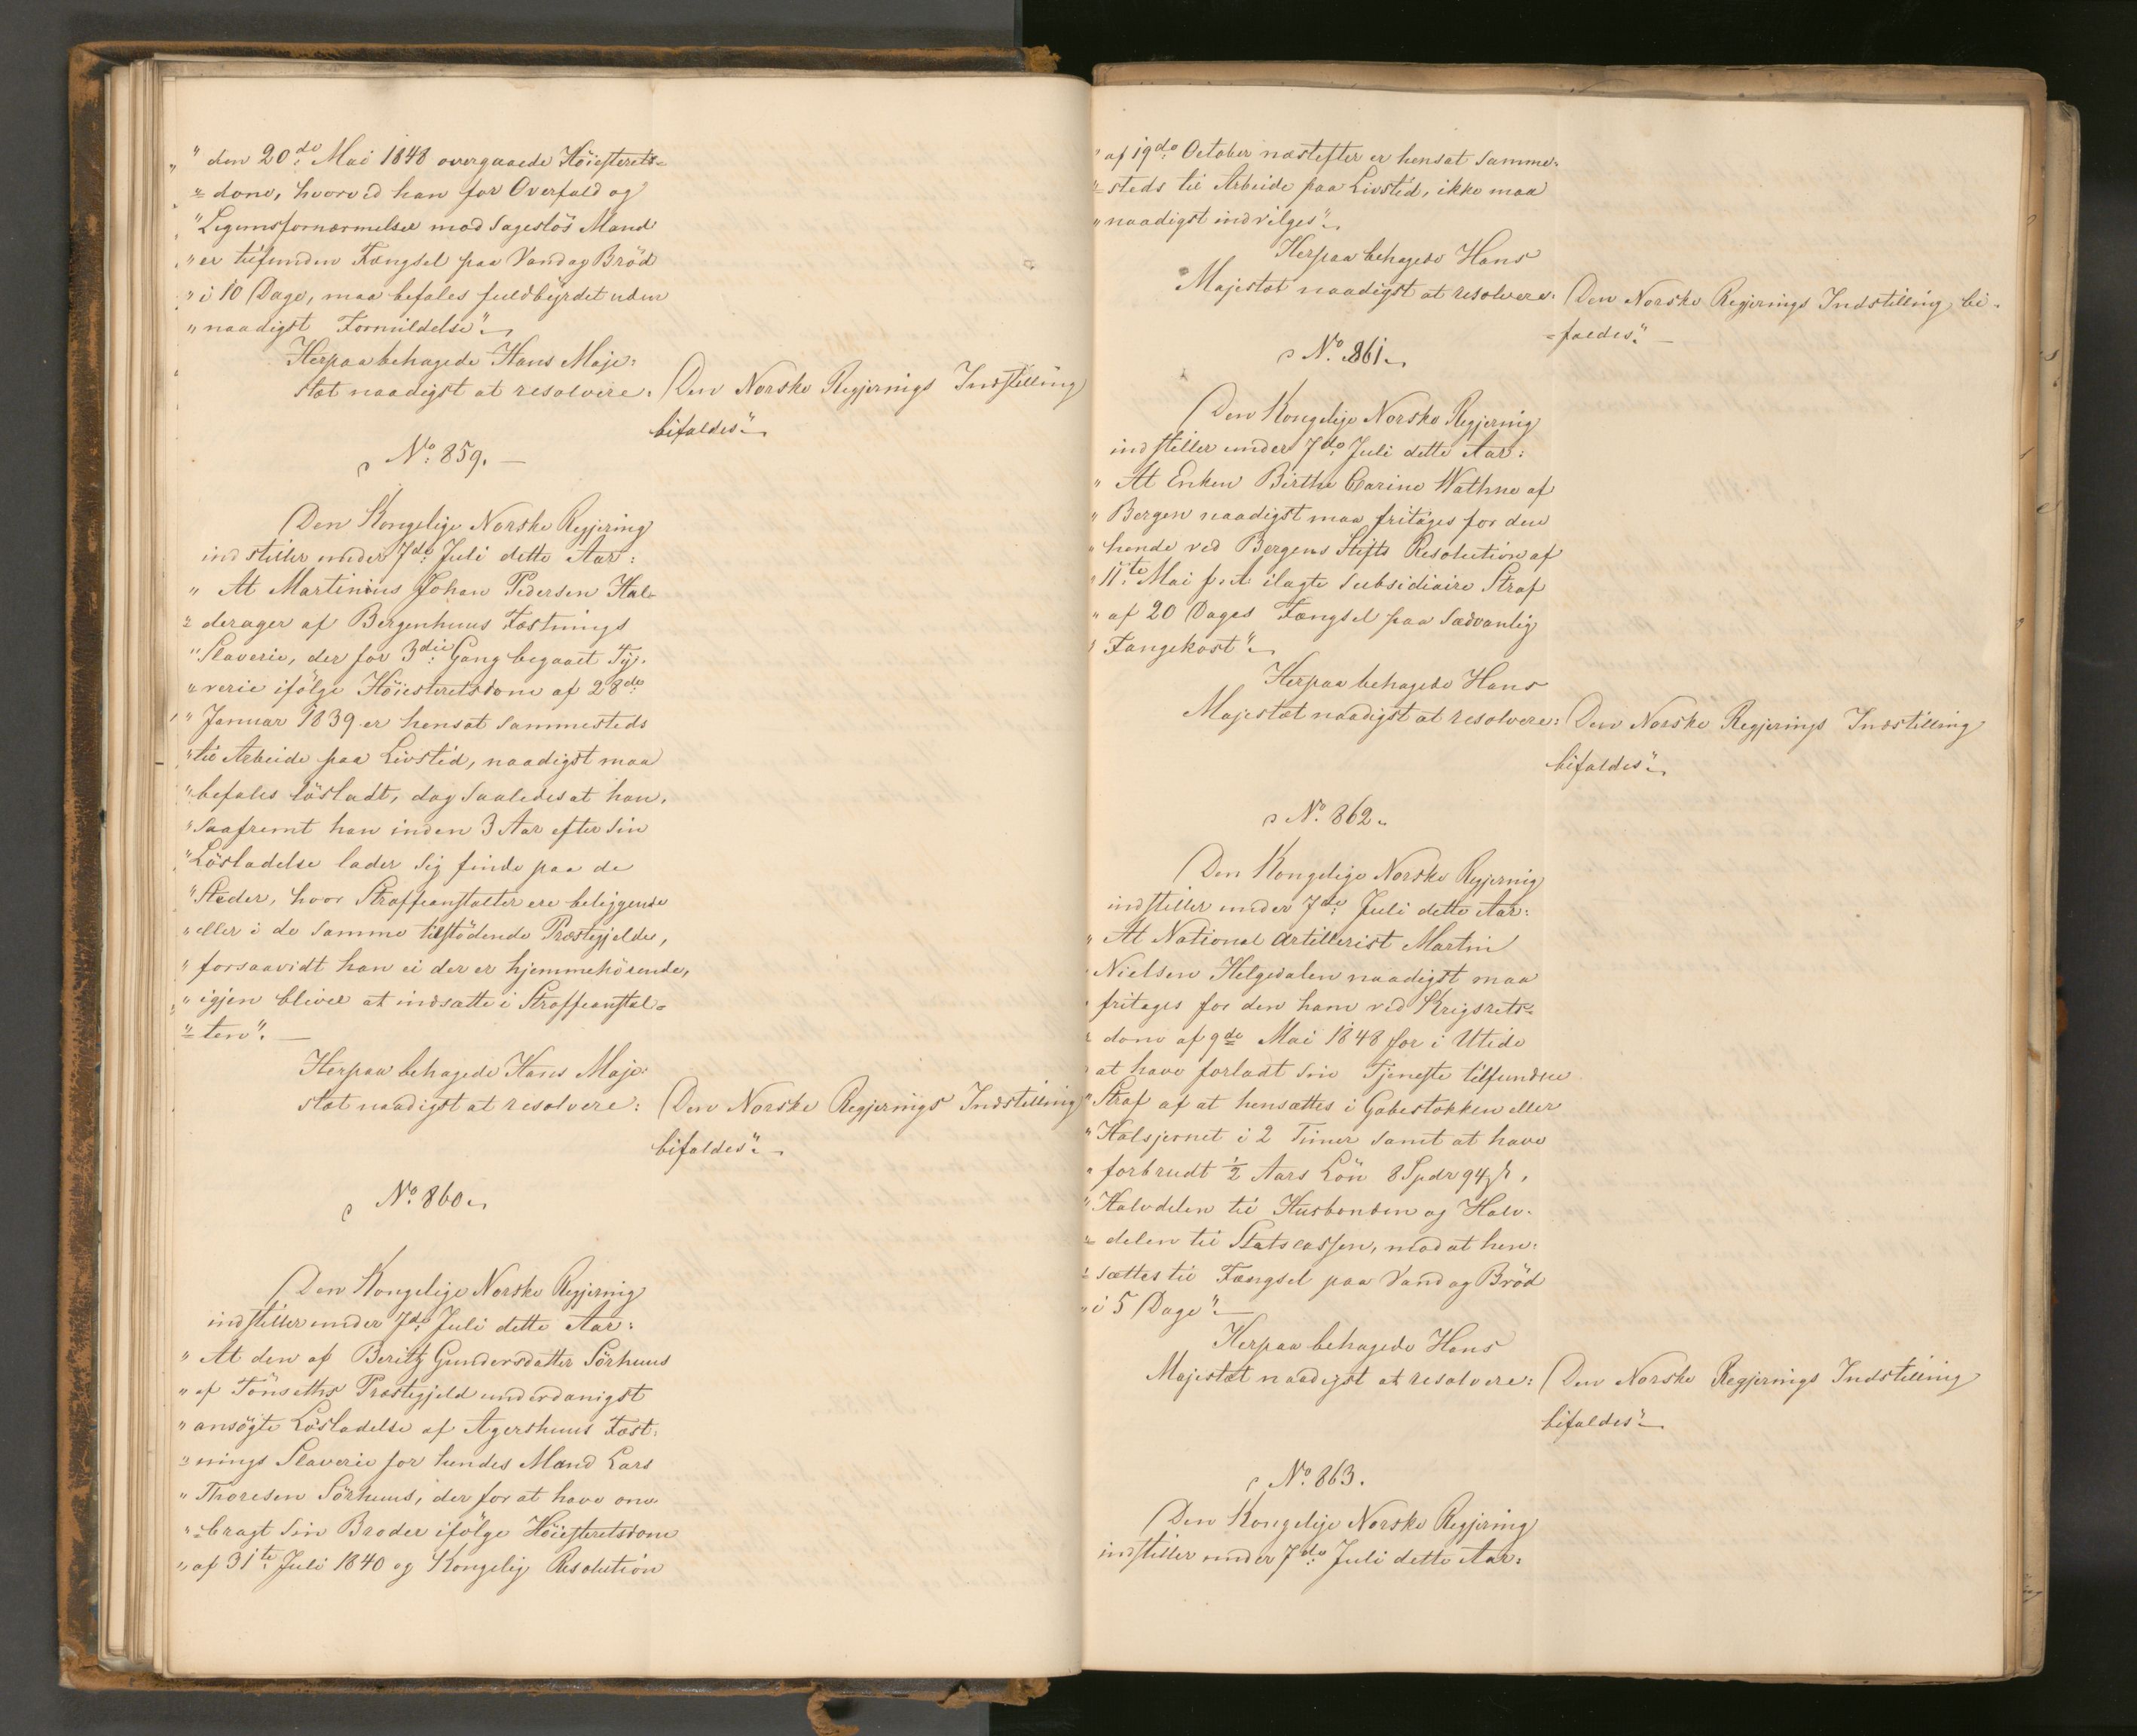 " den 20de Mai 1848 overgaaede Höiesterets=
"=dom, hvorved han for Overfald og
" Legemsfornærmelse mod sageslös Mand
" er tilfunden Fængsel paa Vand og Bröd
" i 10 Dage, maa befales fuldbyrdet uden
" naadigst Formildelse".
Herpaa behagede Hans Maje=
stæt naadigst at resolvere: Den Norske Regjerings Indstilling
bifaldes".
No 859.
Den Kongelige Norske Regjering
indstiller under 7de Juli dette Aar:
" At Martinius Johan Pedersen Hal=
"=derager af Bergenhuus Fæstnings
" Slaverie, der for 3die Gang begaaet Ty=
" verie ifölge Höiesteretsdom af 28de
" Januar 1839 er hensat sammesteds
" til Arbeide paa Livstid, naadigst maa
" befales lösladt, dog saaledes at han,
" saafremt han inden 3 Aar efter sin
" Lösladelse lader sig finde paa de
" Steder, hvor Straffeanstalter ere beliggende
" eller i de samme tilstödende Præstegjelde,
" forsaavidt han ei der er hjemmehörende,
" igjen bliver at indsætte i Straffeanstal=
"=ten".
Herpaa behagede Hans Maje=
stæt naadigst at resolvere: Den Norske Regjerings Indstilling
bifaldes".
No 860.
Den Kongelige Norske Regjering
indstiller under 7de Juli dette Aar:
" At den af Berith Gundersdatter Sörhuus
" af Tönseths Præstegjeld underdanigst
" ansögte Lösladelse af Agershuus Fæst=
"=nings Slaverie for hendes Mand Lars
" Thoresen Sörhuus, der for at have om=
"=bragt sin Broder ifölge Höiesteretsdom
" af 31te Juli 1840 og Kongelig Resolution
" af 19de October næstefter er hensat samme=
"=steds til Arbeide paa Livstid, ikke maa
" naadigst indvilges".
Herpaa behagede Hans
Majestæt naadigst at resolvere: Den Norske Regjerings Indstilling bi=
=faldes".
No 861.
Den Kongelige Norske Regjering
indstiller under 7de Juli dette Aar:
" At Enken Birthe Carine Wathne af
" Bergen naadigst maa fritages for den
" hende ved Bergens Stifts Resolution af
" 11te Mai f. A. ilagte subsidiaire Straf
" af 20 Dages Fængsel paa sædvanlig
" Fangekost".
Herpaa behagede Hans
Majestæt naadigst at resolvere: Den Norske Regjerings Indstilling
bifaldes".
No 862.
Den Kongelige Norske Regjering
indstiller under 7de Juli dette Aar:
" At National Artillerist Martin
" Nielsen Helgedalen naadigst maa
" fritages for den ham ved Krigsrets=
" dom af 9de Mai 1848 for i Utide
" at have forladt sin Tjeneste tilfundne
" Straf af at hensættes i Gabestokken eller
" Halsjernet i 2 Timer samt at have
" forbrudt ½ Aars Lön 8 Spdr 94 ß,
" Halvdelen til Husbonden og Halv=
"=delen til Statscassen, mod at hen=
"=sættes til Fængsel paa Vand og Bröd
" i 5 Dage".
Herpaa behagede Hans
Majestæt naadigst at resolvere: Den Norske Regjerings Indstilling
bifaldes".
No 863.
Den Kongelige Norske Regjering
indstiller under 7de Juli dette Aar: